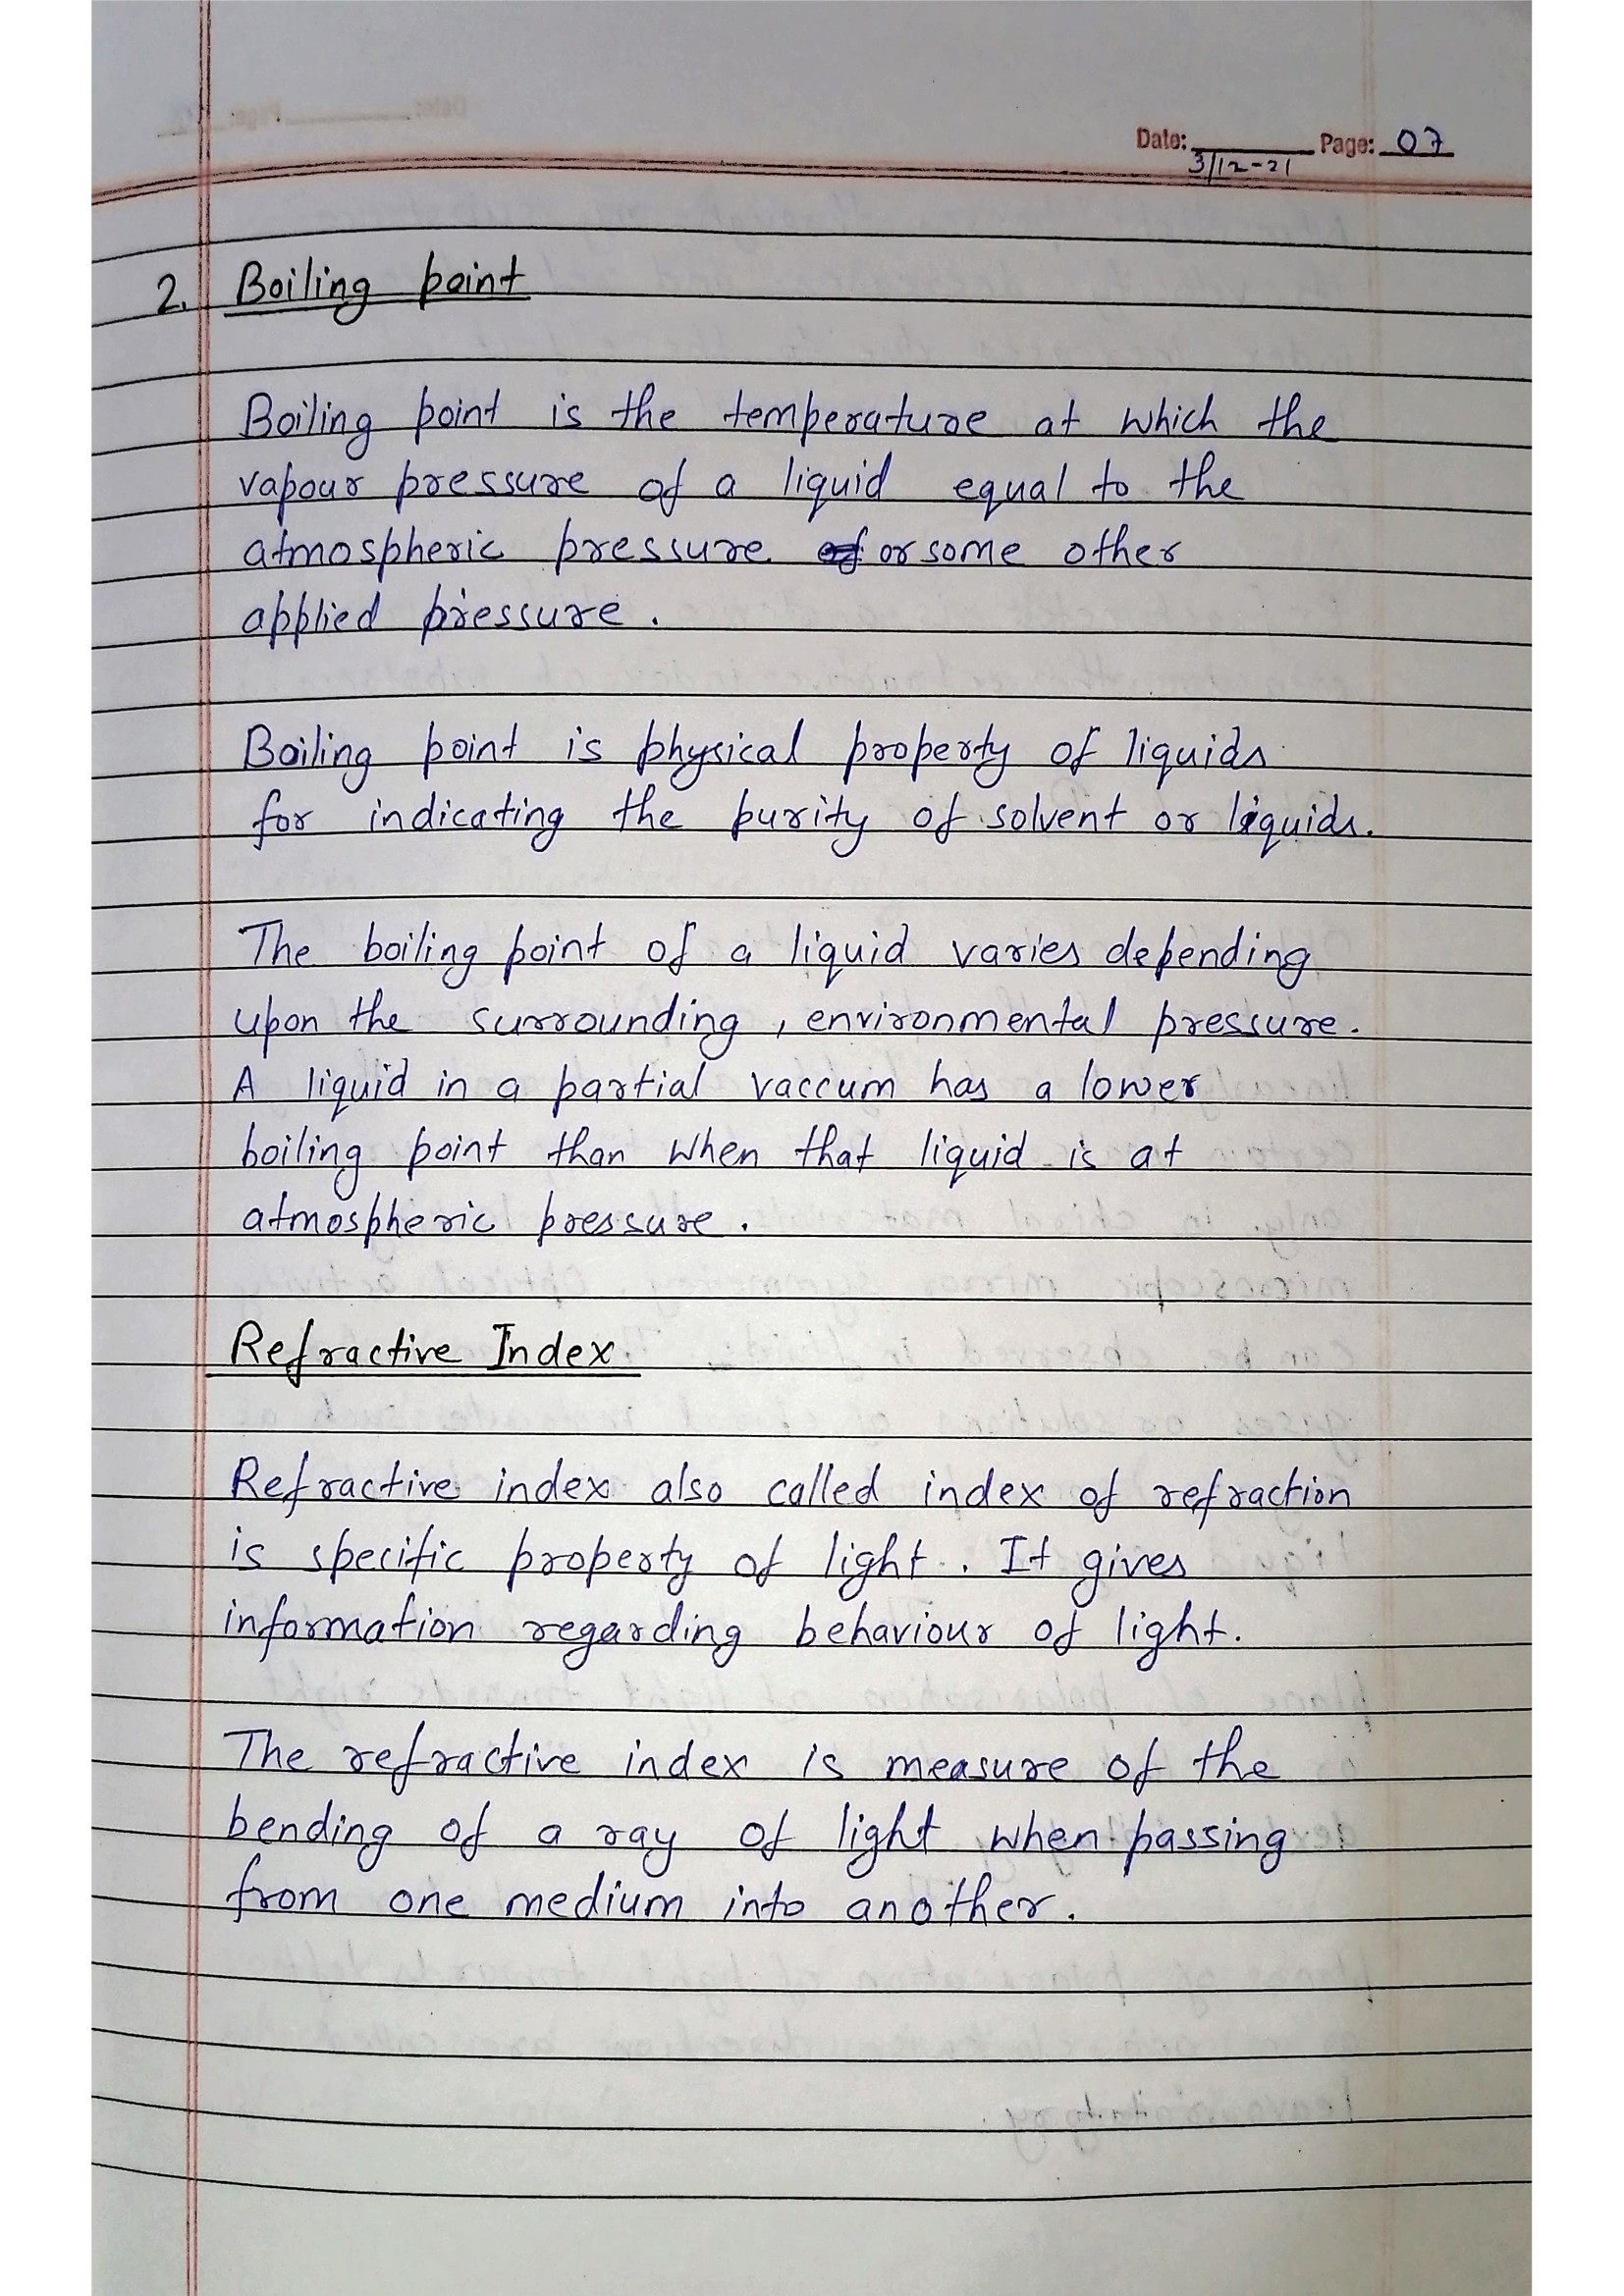 Date: 3/12-21 Page: 07
2. Boiling point
Boiling point is the temperature at which the
vapour pressure of a liquid equal to the
atmospheric pressure or some other
applied pressure.
Boiling point is physical property of liquids
for indicating the purity of solvent or liquids.
The boiling point of a liquid varies depending
upon the surrounding, environmental pressure.
A liquid in a partial vaccum has a lower
boiling point than when that liquid is at
atmospheric pressure.
Refractive Index
Refractive index also called index of refraction
is specific property of light. It gives
information regarding behaviour of light.
The refractive index is measure of the
bending of a ray of light when passing
from one medium into another.